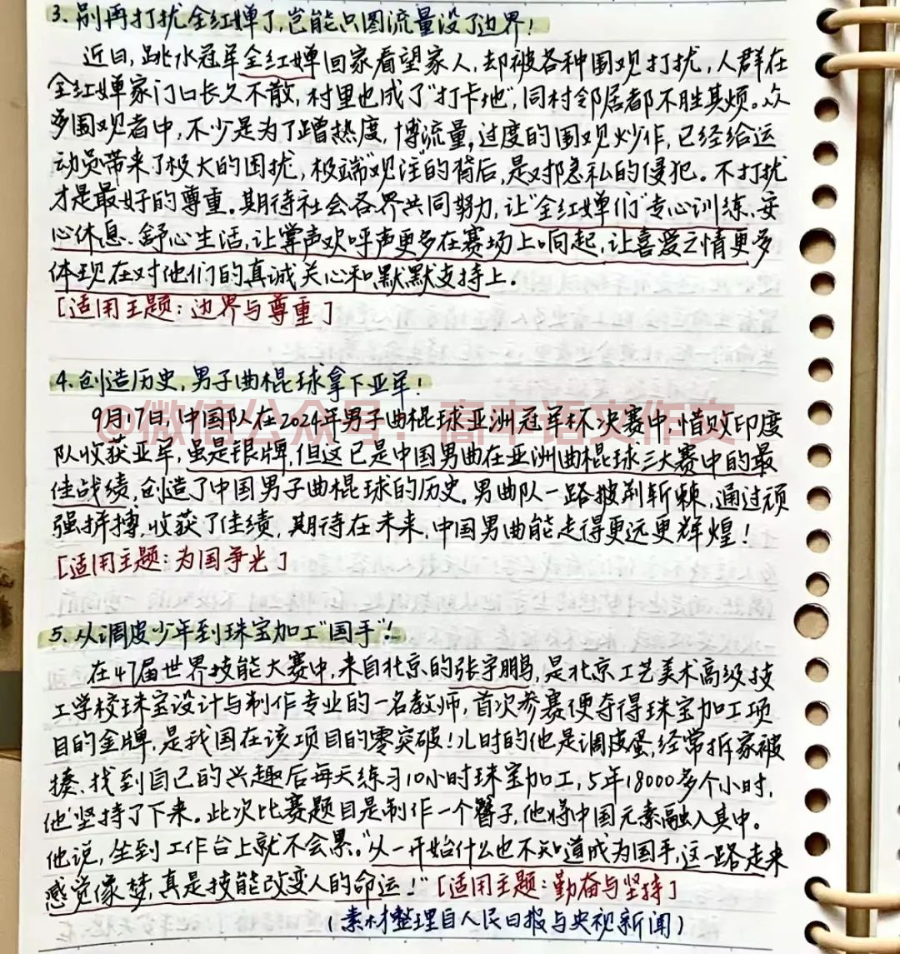 3.别再打扰全红婵了,岂能只图流量没了边界!
近日,跳水冠军全红婵回家看望家人,却被各种围观打扰,人群在
全红婵家门口长久不散,村里也成了"打卡地",同村邻居都不胜其烦。众
多围观者中,不少是为了蹭热度,博流量,过度的围观炒作,已经给运
动员带来了极大的困扰,极端"观注"的背后,是对隐私的侵犯。不打扰
才是最好的尊重。期待社会各界共同努力,让"全红婵们"专心训练、安
心休息、舒心生活,让掌声欢呼声更多在赛场上响起,让喜爱之情更多
体现在对他们的真诚关心和默默支持上。
[适用主题:边界与尊重]
4.创造历史,男子曲棍球拿下亚军!
9月17日,中国队在2024年男子曲棍球亚洲冠军杯决赛中,惜败印度
队收获亚军,虽是银牌,但这已是中国男曲在亚洲曲棍球三大赛中的最
佳战绩,创造了中国男子曲棍球的历史。男曲队一路披荆斩棘,通过顽
强拼搏,收获了佳绩,期待在未来,中国男曲能走得更远更辉煌!
[适用主题:为国争光]
@微信公众号:高中语文作文
5.从调皮少年到珠宝加工"国手"!
在47届世界技能大赛中,来自北京的张宇鹏,是北京工艺美术高级技
工学校珠宝设计与制作专业的一名教师,首次参赛便夺得珠宝加工项
目的金牌,是我国在该项目的零突破!儿时的他是调皮蛋,经常拆家被
揍、找到自己的兴趣后每天练习10小时珠宝加工,5年18000多个小时,
他坚持了下来。此次比赛题目是制作一个簪子,他将中国元素融入其中。
他说,坐到工作台上就不会累。"从一开始什么也不知道成为国手,这一路走来
感觉像梦,真是技能改变人的命运!"[适用主题:勤奋与坚持]
(素材整理自人民日报与央视新闻)